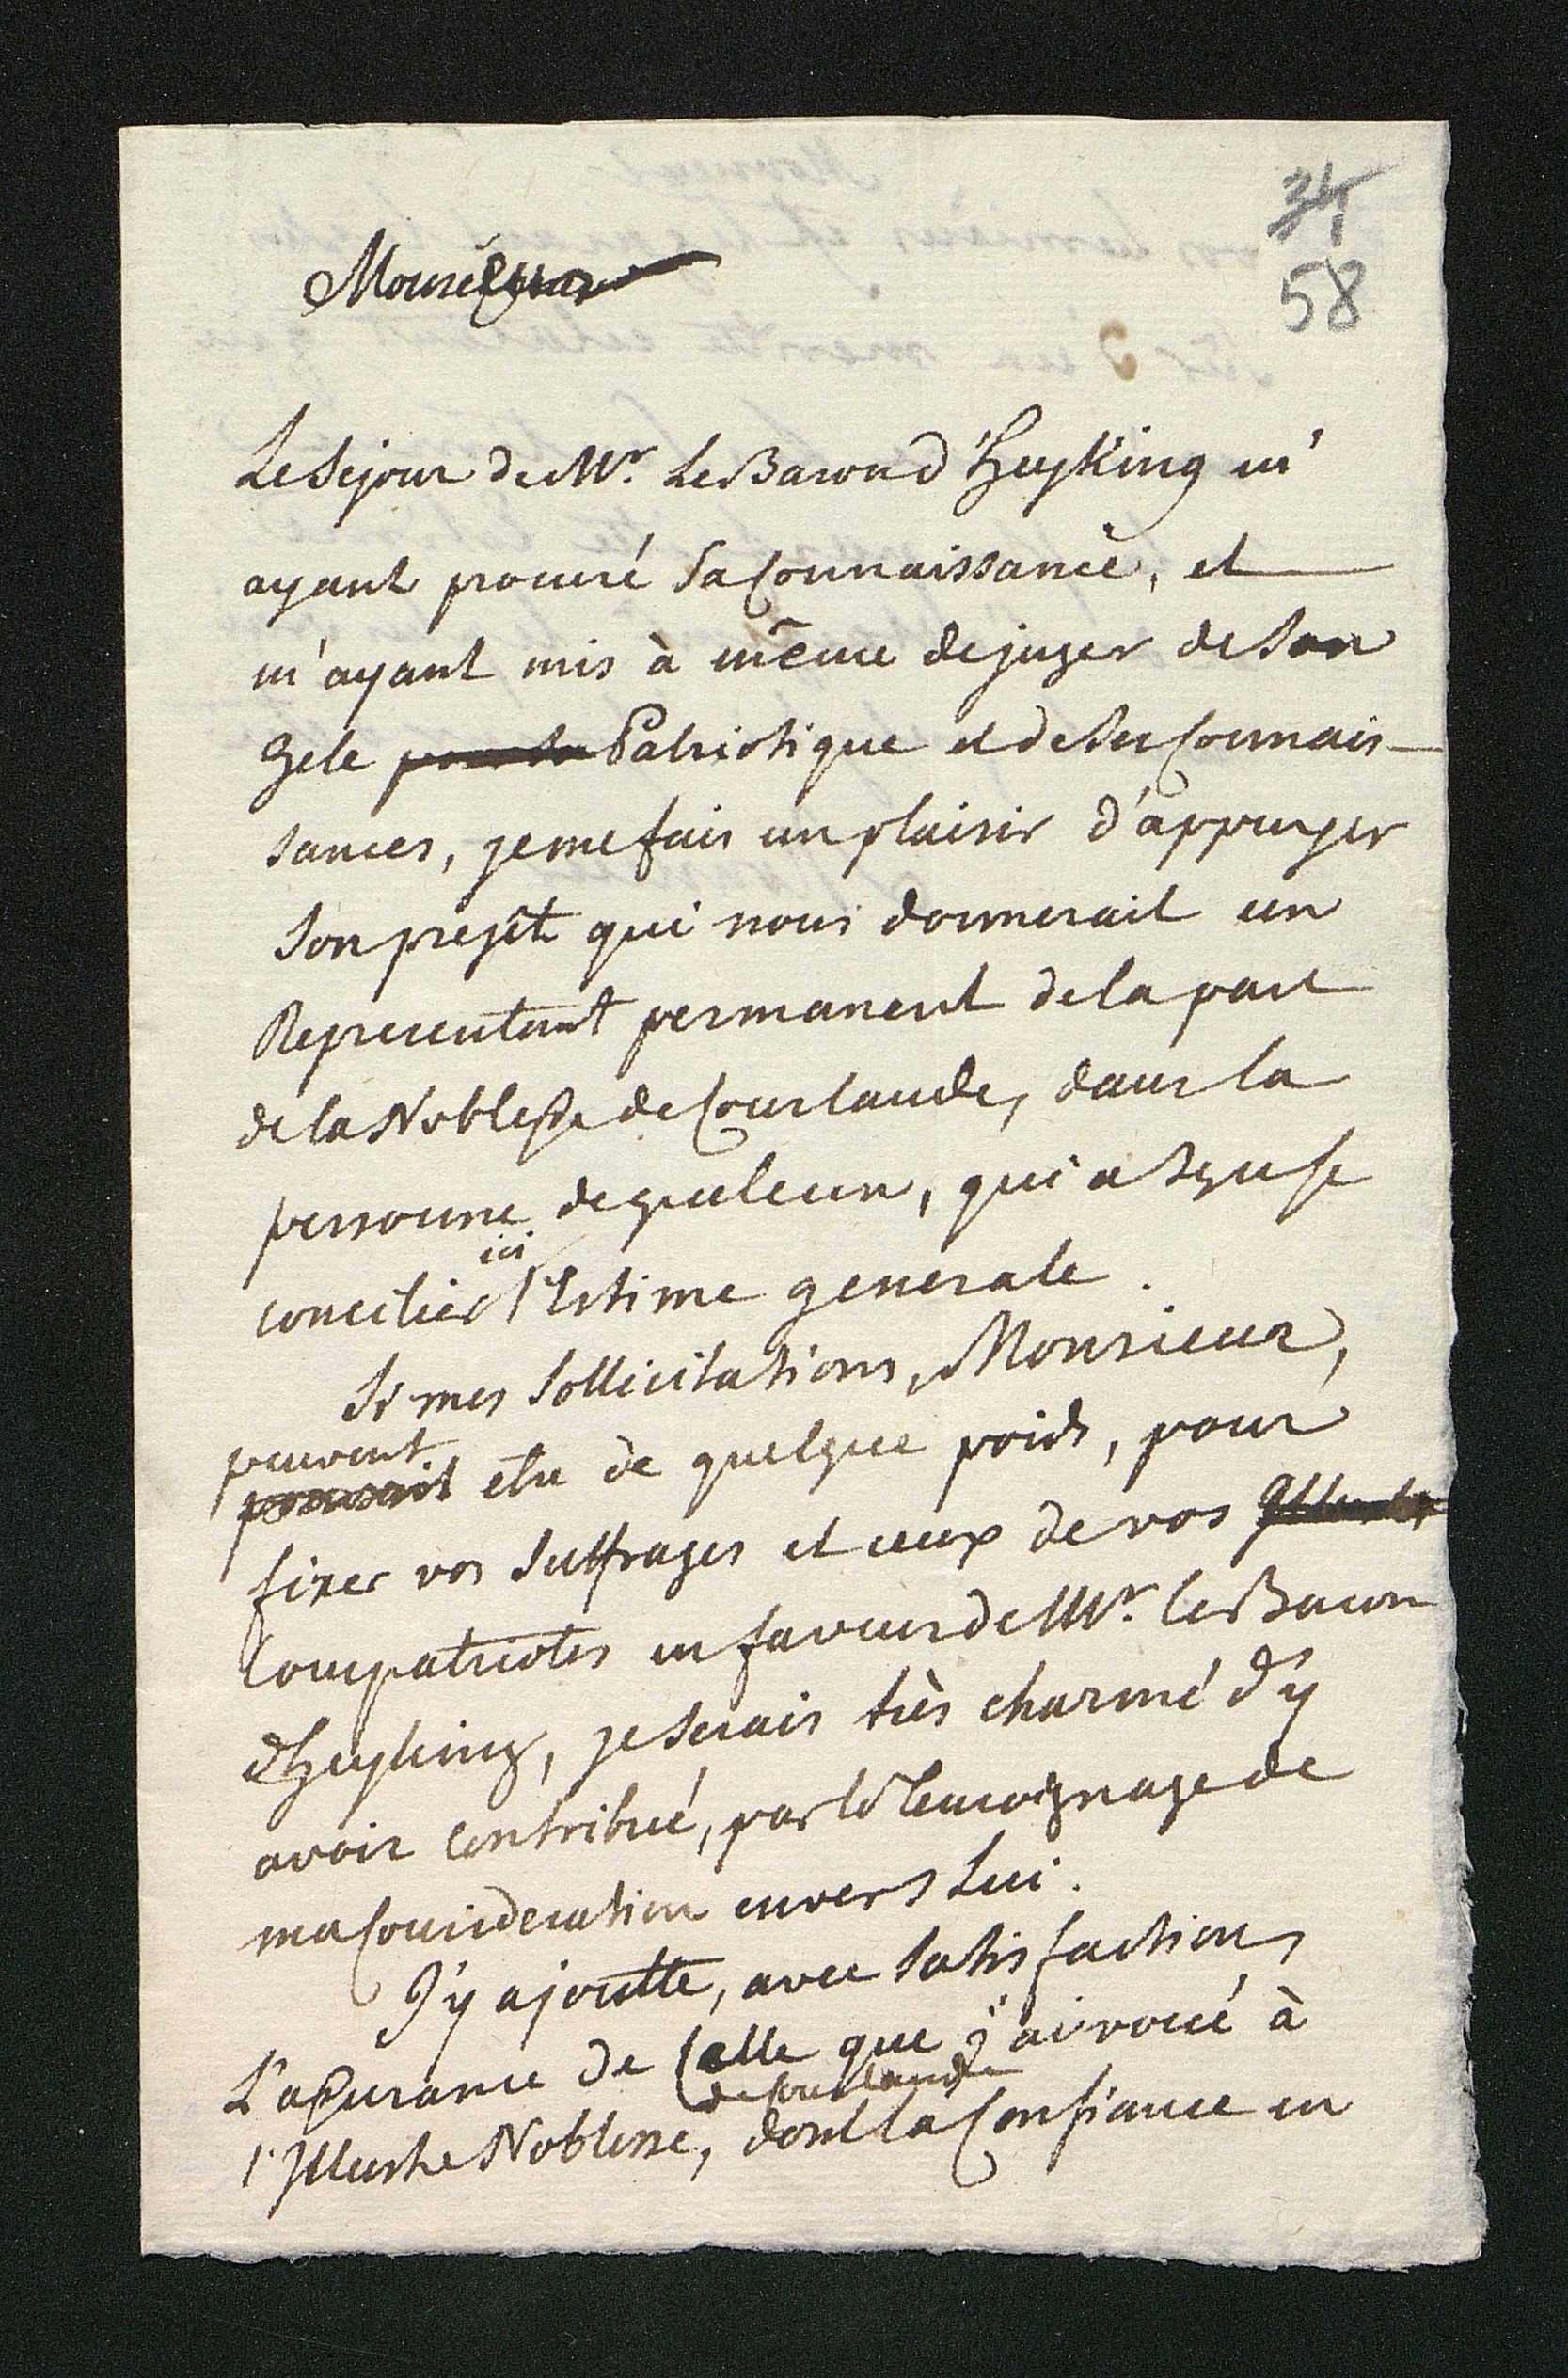 34
58
Monsieur
Le Sejour de Mr. Le Baron d'Heyking m'
ayant procuré Sa Connaissance, et
m'ayant mis à même de juger de Son
Zele Patriotique et de Ses Connais-
sances, je me fais un plaisir d'appuyer
Son projèt qui nous donnerait un
Representant permanent de la part
de la Noblesse de Courlande, dans la
personne de quelcun, qui a sçu se
concilier ici l'Estime generale.
Si mes Sollicitations, Monsieur,
peuvent etre de quelque poids, pour
fixer vos Suffrages et ceux de vos
Compatriotes en faveur de Mr. le Baron
d'Heyking, je Serais très charmé d'y
avoir contribué, par le temoignage de
ma Consideration envers Lui.
J'y ajoutte, avec Satisfaction,
L'assurance de Celle que j'ai voué à
l'Illustre Noblesse de Courlande, dont la Confiance en